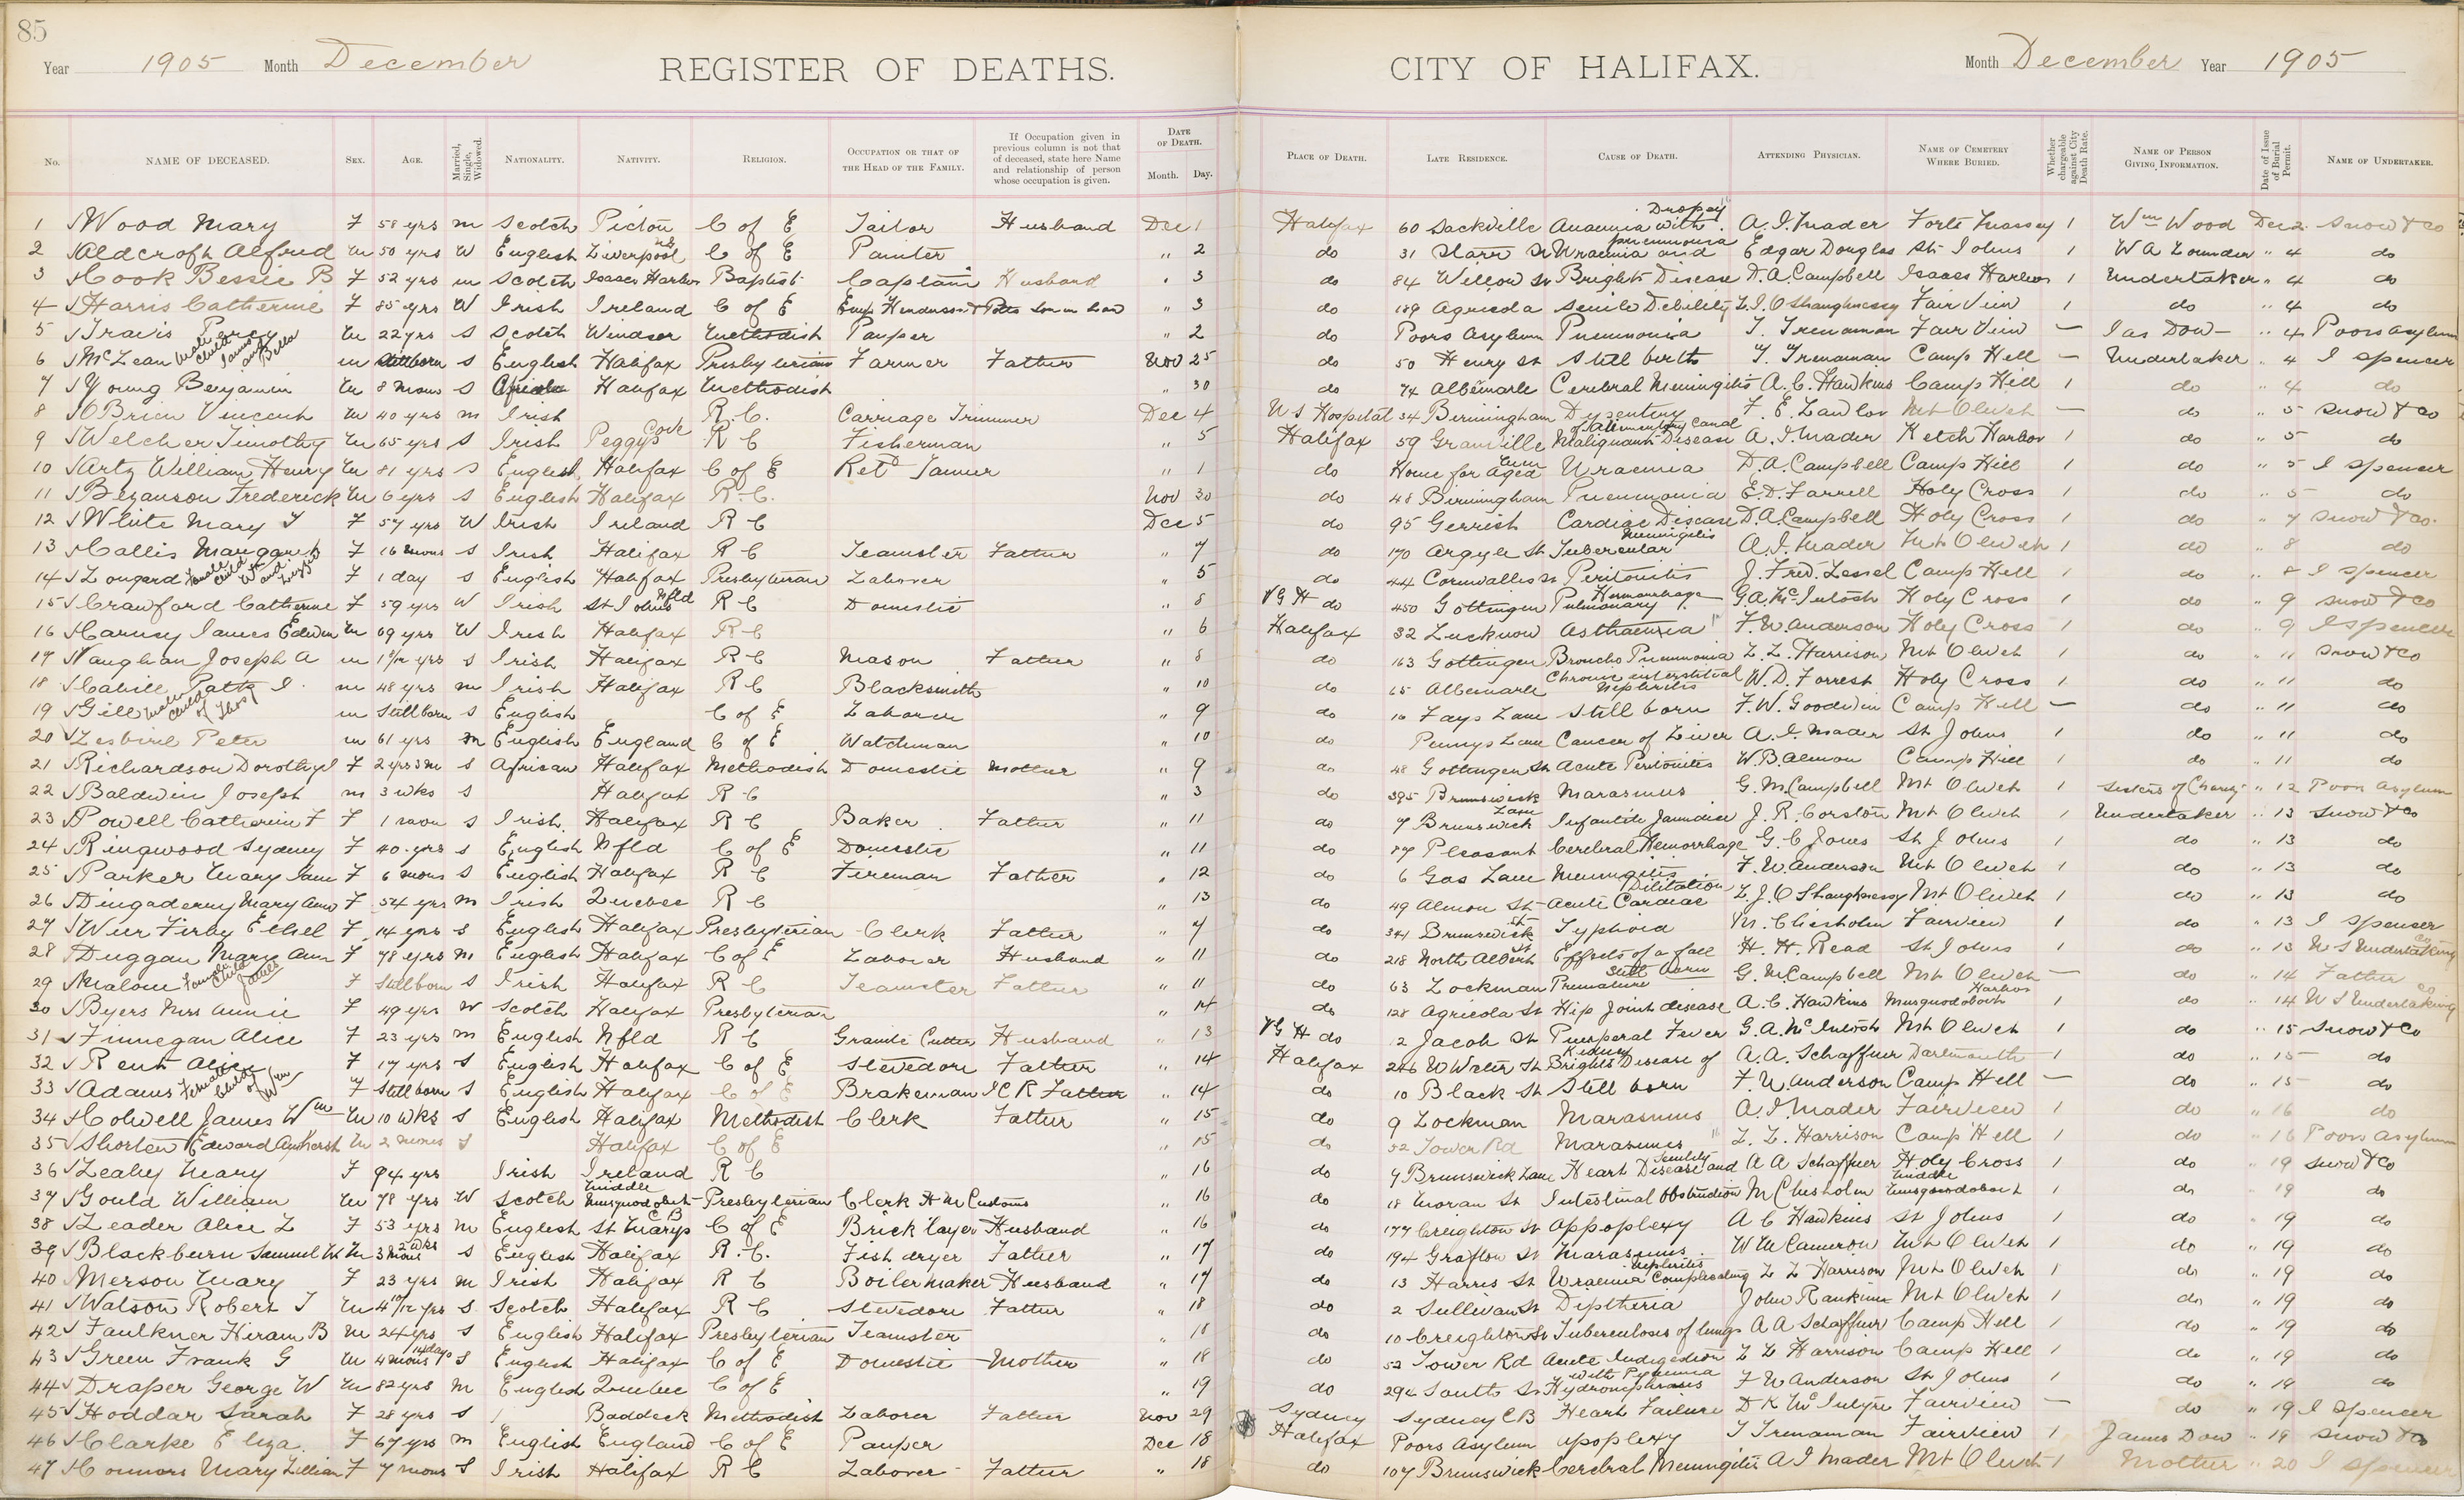 85
Year 1905 Month December REGISTER OF DEATHS. CITY OF HALIFAX. Month December Year 1905
No. NAME OF DECEASED. SEX. AGE. Married, Single, Widowed. NATIONALITY. NATIVITY. RELIGION. OCCUPATION OR THAT OF THE HEAD OF THE FAMILY. If Occupation given in previous column is not that of deceased, state here Name and relationship of person whose occupation is given. DATE OF DEATH. Month. Day. PLACE OF DEATH. LATE RESIDENCE. CAUSE OF DEATH. ATTENDING PHYSICIAN. NAME OF CEMETERY WHERE BURIED. Whether chargeable against City Death Rate. NAME OF PERSON GIVING INFORMATION. Date of Issue of Burial Permit. NAME OF UNDERTAKER.
1 Wood Mary F 58 yrs m Scotch Pictou C of E Tailor Husband Dec 1 Halifax 60 Sackville Anaemia with Dropsy A. I. Mader Forte Massey 1 Wm Wood Dec 2 Snow & Co
2 Aldcroft Alfred M 50 yrs W English Liverpool NS C of E Painter " 2 do 31 Starr St Uraemia and pneumonia Edgar Douglas St Johns 1 W A " 4 do
3 Cook Bessie B F 52 yrs m Scotch Isaacs Harbor Baptist Captain Husband " 3 do 84 Willow St Brights Disease D. A. Campbell Isaacs Harbor 1 Undertaker " 4 do
4 Harris Catherine F 85 yrs W Irish Ireland C of E Emp Henderson & Potts Son in Law " 3 do 189 Agricola Senile Debility L. J. O Shaughnessy Fair View 1 do " 4 do
5 Travis Percy M 22 yrs S Scotch Windsor Methodist Pauper " 2 do Poors Asylum Pneumonia T. Trenaman Fair View — Jas Dow " 4 Poors Asylum
6 McLean Male Child James and Bella m Stillborn S English Halifax Presbyterian Farmer Father Nov 25 do 50 Henry St Still birth T. Trenaman Camp Hill — Undertaker " 4 I Spencer
7 Young Benjamin M 8 mons S Halifax Methodist " 30 do 74 Albemarle Cerebral Meningitis A. C. Hawkins Camp Hill 1 do " 4 do
8 OBrien Vincent M 40 yrs m Irish R. C. Carriage Trimmer Dec 4 U S Hospital 34 Birmingham Dysentery F. E. Lawlor Mt Olivet — do " 5 Snow & Co
9 Welcher Timothy M 65 yrs S Irish Peggys Cove R C Fisherman " 5 Halifax 59 Granville Malignant Disease of Alimentary Canal A. I. Mader Ketch Harbor 1 do " 5 do
10 Artz William Henry M 81 yrs S English Halifax C of E Retd Tanner " 1 do Home for Aged Men Uraemia D. A. Campbell Camp Hill 1 do " 5 I Spencer
11 Bezanson Frederick M 6 yrs S English Halifax R. C. Nov 30 do 48 Birmingham Pneumonia E. D. Farrell Holy Cross 1 do " 5 do
12 White Mary T F 57 yrs W Irish Ireland R C Dec 5 do 95 Gerrish Cardiac Disease D. A. Campbell Holy Cross 1 do " 7 Snow & Co.
13 Callis Margaret F 16 mons S Irish Halifax R C Teamster Father " 7 do 170 Argyle St Tubercular Meningitis A. I. Mader Mt Olivet 1 do " 8 do
14 Lougard Female Child Wm and F 1 day S English Halifax Presbyterian Laborer " 5 do 44 Cornwallis St Peritonitis J. Fred. Lessel Camp Hill 1 do " 8 I Spencer
15 Crawford Catherine F 59 yrs W Irish St Johns Nfld R C Domestic " 8 V G H do 450 Gottingen Pulmonary Hemorrhage G. A. McIntosh Holy Cross 1 do " 9 Snow & Co
16 Carney James Edwin M 69 yrs W Irish Halifax R C " 6 Halifax 32 Lucknow Asthaenia F. W. Anderson Holy Cross 1 do " 9 I Spencer
17 Vaughan Joseph A m yrs S Irish Halifax R C Mason Father " 8 do 163 Gottingen Broncho Pneumonia L. L. Harrison Mt Olivet 1 do " 11 Snow & Co
18 Cahill Patk J. m 48 yrs m Irish Halifax R C Blacksmith " 10 do 65 Albemarle Chronic interstitial Nephritis W. D. Forrest Holy Cross 1 do " 11 do
19 Gill Male Child of Thos m Stillborn S English C of E Laborer " 9 do 16 Fays Lane Still born F. W. Goodwin Camp Hill — do " 11 do
20 Lesbirel Peter m 61 yrs m English England C of E Watchman " 10 do Pennys Lane Cancer of Liver A. I. Mader St Johns 1 do " 11 do
21 Richardson Dorothy F 2 yrs 3 m S African Halifax Methodist Domestic Mother " 9 do 48 Gottingen St Acute Peritonitis W. B. Almon Camp Hill 1 do " 11 do
22 Baldwin Joseph m 3 wks S Halifax R C " 3 do 395 Brunswick Marasmus G. M. Campbell Mt Olivet 1 Sisters of Charity " 12 Poors Asylum
23 Powell Catherine F F 1 mon S Irish Halifax R C Baker Father " 11 do 7 Brunswick Lane Infantile Jaundice J. R. Corston Mt Olivet 1 Undertaker " 13 Snow & Co
24 Ringwood Sydney F 40 yrs S English Nfld C of E Domestic " 11 do 87 Pleasant Cerebral Hemorrhage G. C Jones St Johns 1 do " 13 do
25 Parker Mary Jane F 6 mons S English Halifax R C Fireman Father " 12 do 6 Gas Lane Meningitis F. W. Anderson Mt Olivet 1 do " 13 do
26 Dingaderry Mary Ann F 54 yrs m Irish Quebec R C " 13 do 49 Almon St Acute Cardiac Dilitation L. J. O Shaughnessy Mt Olivet 1 do " 13 do
27 Wier Firby Ethel F 14 yrs S English Halifax Presbyterian Clerk Father " 7 do 341 Brunswick St Typhoid M. Chisholm Fairview 1 do " 13 I Spencer
28 Duggan Mary Ann F 78 yrs m English Halifax C of E Laborer Husband " 11 do 218 North Albert St Effects of a fall H. H. Read St Johns 1 do " 13 N S Undertaking Co
29 Malone Female Child James F Stillborn S Irish Halifax R C Teamster Father " 11 do 63 Lockman Premature Still born G. M. Campbell Mt Olivet — do " 14 Father
30 Byers Mrs Annie F 49 yrs W Scotch Halifax Presbyterian " 14 do 128 Agricola St Hip Joint disease A. C. Hawkins Musquodoboit Harbor 1 do " 14 N S Undertaking Co
31 Finnegan Alice F 23 yrs m English Nfld R C Granite Cutter Husband " 13 V G H do 2 Jacob St Puerperal Fever G. A. McIntosh Mt Olivet 1 do " 15 Snow & Co
32 Rent Alice F 17 yrs S English Halifax C of E Stevedore Father " 14 Halifax 246 U Water St Brights Disease of Kidney A. A. Schaffner Dartmouth 1 do " 15 do
33 Adams Female Child of Wm F Still born S English Halifax C of E Brakeman ICR Father " 14 do 10 Black St Still born F. W. Anderson Camp Hill — do " 15 do
34 Colwell James Wm M 10 wks S English Halifax Methodist Clerk Father " 15 do 9 Lockman Marasmus A. I. Mader Fairview 1 do " 16 do
35 Shorten Edward Amherst M 2 mons S Halifax C of E " 15 do 52 Tower Rd Marasmus L. L. Harrison Camp Hill 1 do " 16 Poors Asylum
36 Leahy Mary F 94 yrs Irish Ireland R C " 16 do 7 Brunswick Lane Heart Disease and Senility A A Schaffner Holy Cross 1 do " 19 Snow & Co
37 Gould William M 78 yrs W Scotch Middle Musquodoboit Presbyterian Clerk H M Customs " 16 do 18 Moran St Intestinal Obstruction M Chisholm Middle Musquodoboit 1 do " 19 do
38 Leader Alice L F 53 yrs m English St Marys C B C of E Brick layer Husband " 16 do 177 Creighton St Appoplexy A C Hawkins St Johns 1 do " 19 do
39 Blackburn Samuel M 3 mons 2 wks S English Halifax R. C. Fish dryer Father " 17 do 194 Grafton St Marasmus W M Cameron Mt Olivet 1 do " 19 do
40 Merson Mary F 23 yrs m Irish Halifax R C Boilermaker Husband " 17 do 13 Harris St Uraemia Complicating Nephritis L L Harrison Mt Olivet 1 do " 19 do
41 Watson Robert J M 4 10/12 yrs S Scotch Halifax R C Stevedore Father " 18 do 2 Sullivan St Diptheria John Rankine Mt Olivet 1 do " 19 do
42 Faulkner Hiram B M 24 yrs S English Halifax Presbyterian Teamster " 18 do 10 Creighton St Tuberculosis of lungs A A Schaffner Camp Hill 1 do " 19 do
43 Green Frank G M 4 mons 14 days S English Halifax C of E Domestic Mother " 18 do 52 Tower Rd Acute Indigestion L L Harrison Camp Hill 1 do " 19 do
44 Draper George W M 82 yrs m English Quebec C of E " 19 do 294 South St Hydronephrosis with Pyaemia F W Anderson St Johns 1 do " 19 do
45 Hoddar Sarah F 28 yrs S Baddeck Methodist Laborer Father Nov 29 Sydney Sydney C B Heart Failure D K McIntyre Fairview — do " 19 I Spencer
46 Clarke Eliza F 67 yrs m English England C of E Pauper Dec 18 Halifax Poors Asylum Apoplexy T Trenaman Fairview 1 James Dow " 19 Snow & Co
47 Connors Mary Lillian F 7 mons S Irish Halifax R C Laborer Father " 18 do 107 Brunswick Cerebral Meningitis A I Mader Mt Olivet 1 Mother " 20 I Spencer